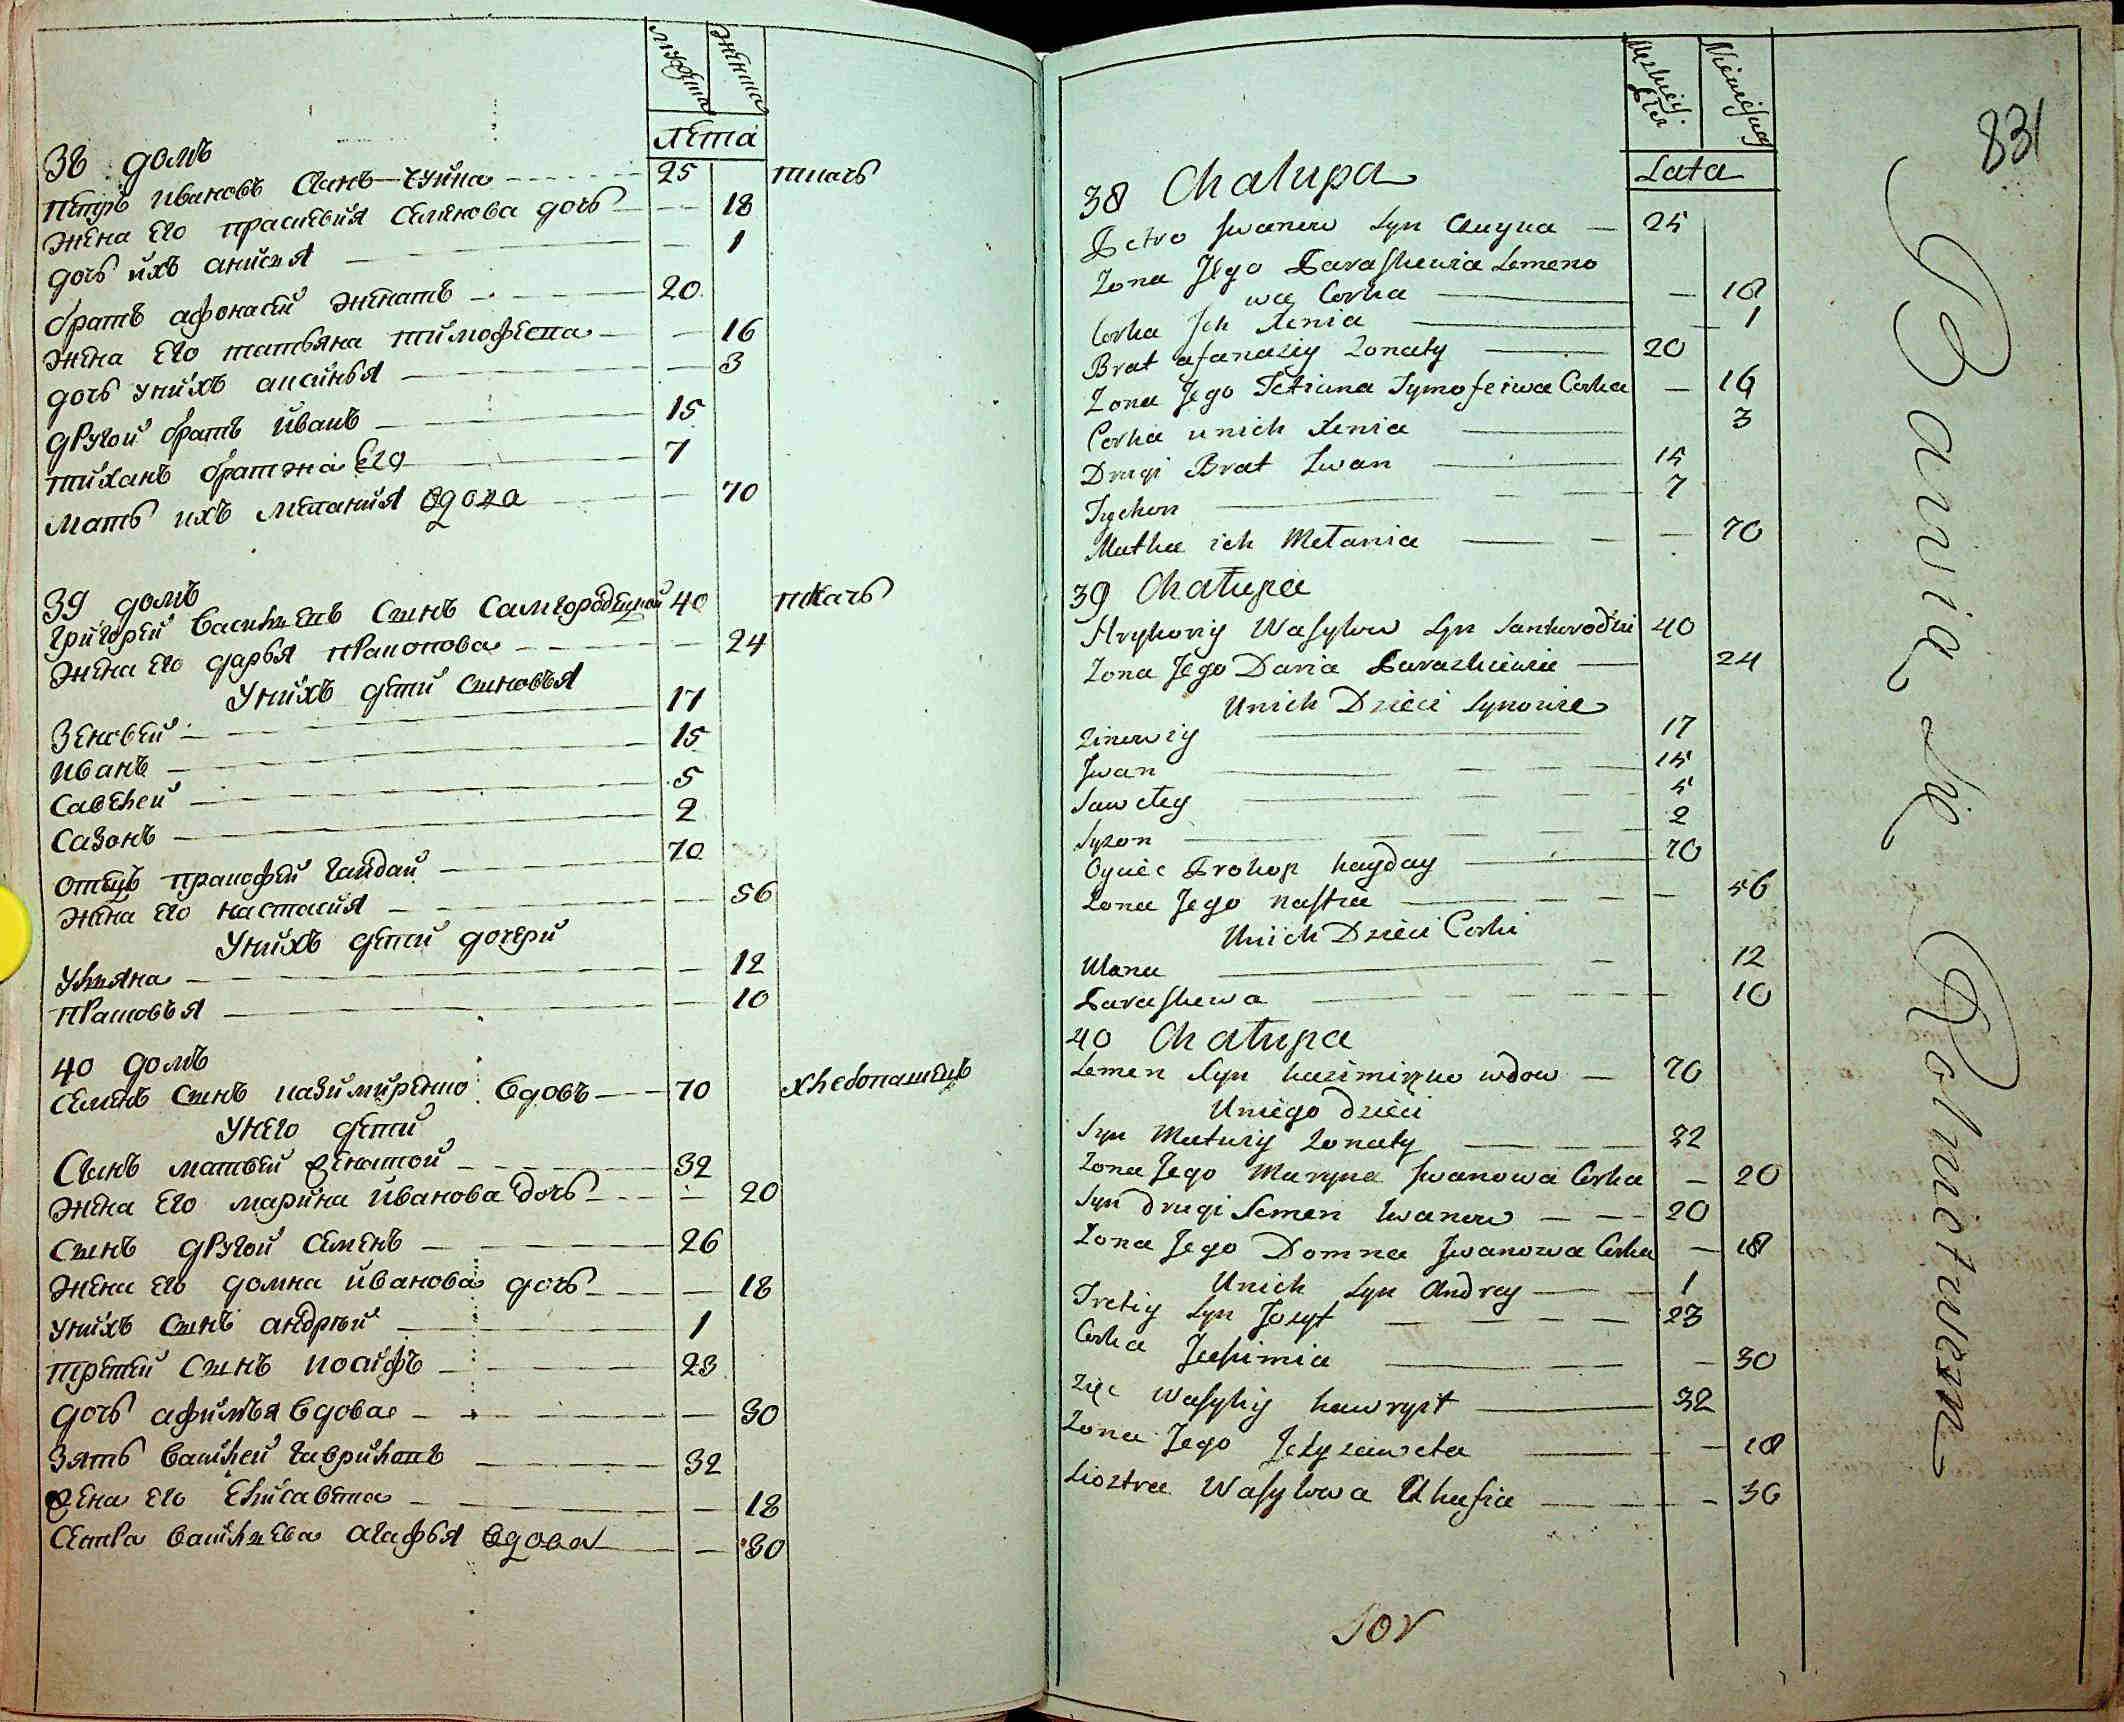 мужеска
женска
лета
38 домъ
Петръ Ивановъ Сынъ Чуйка 25 ткачъ
жена Его праскевия Семенова дочь 18
дочь ихъ аниския 1
братъ афонасей женатъ 20
жена Его татьяна тимофеева 16
дочь унихъ аксинья 3
другой братъ иванъ 15
тиханъ братжна Его 7
мать ихъ мелания вдова 70
39 домъ
григорей васильевъ Сынъ Самгородецкой 40 ткачъ
жена Его дарья 24
Унихъ дети Сыновья
Зеновей 17
иванъ 15
Савелей 5
Сазонъ 2
отецъ пракофей гайдай 70
жена Его настасия 56
Унихъ дети дочери
Ульяна 12
Прасковья 10
40 домъ
Семенъ Сынъ казимиренко вдовъ 70 хлебопашецъ
Унего дети
Сынъ матвей женатой 32
жена Его марина иванова дочь 20
Сынъ другой Семенъ 26
жена Его домна иванова дочь 18
Унихъ Сынъ андрей 1
третей Сынъ иосифъ 23
дочь афимья вдова 30
Зять василей гавриловъ 32
жена Его Елисавета 18
Сестра васильева агафья вдова 30
831
Lata
38 Chałupa
Petro Iwanow Syn Czuyka 25
Zona Jego Paraskewia Semeno
wa Corka 18
Corka Ich Xenia 1
Brat afanaziy Zonaty 20
Zona Jego Tetiana Tymofeiwa Corka 16
Corka unich Xenia 3
Drugi Brat Iwan 15
Tychon 7
Matka ich Mełania 70
39 Chałupa
Hryhoriy Wasylow Syn Samhorodzki 40
Zona Jego Daria 24
Unich Dzieci Synowie
Zinowiy 17
Iwan 15
Sawełey 5
Syzon 2
Oyciec Prokop hayday 70
Zona Jego Nastia 56
Unich Dzieci Corki
Ulana 12
Paraskewa 10
40 Chałupa
Semen Syn kazimirko wdow 70
Uniego dzieci
Syn Matwiy Zonaty 32
Zona Jego Maryna Iwanowa Corka 20
Syn drugi Semen Iwanow 20
Zona Jego Domna Iwanowa Corka 18
Unich Syn Andrey 1
Tretiy Syn Jozyf 23
Corka Jephimia 30
Zięc Wasyliy hawryło 32
Zona Jego Jelyzaweta 18
Siostra Wasylowa Ahafia 30
Bawią Się Rolnictwem